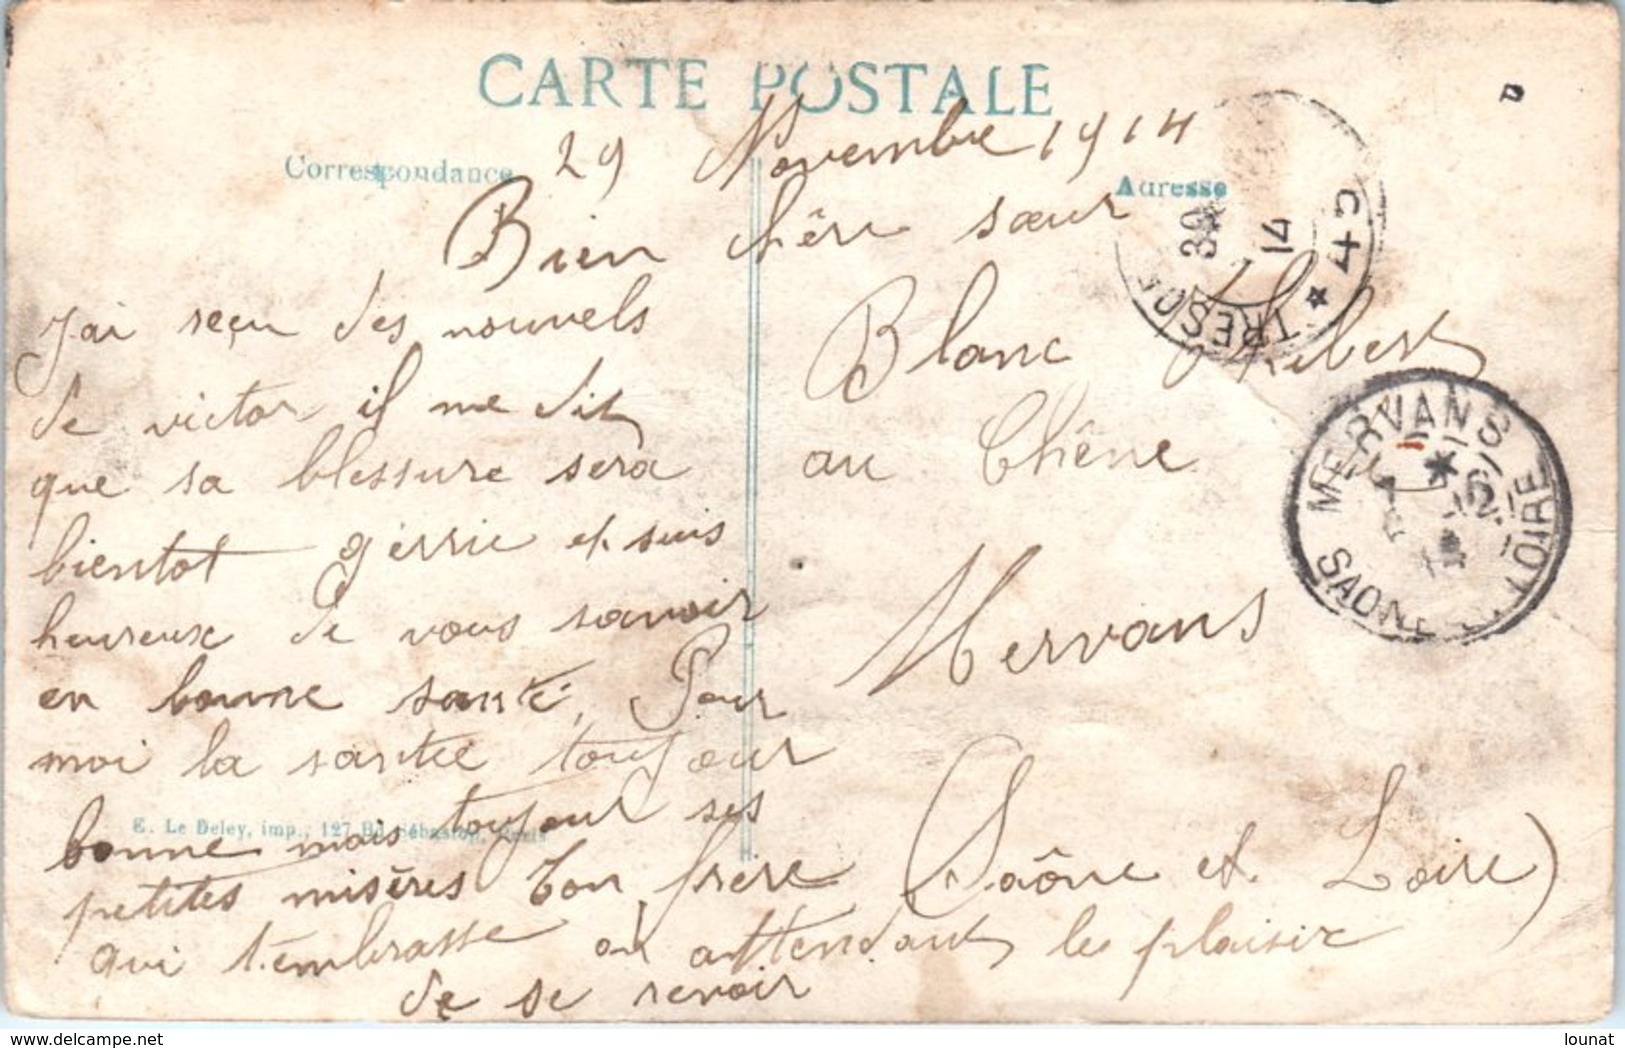 CARTE POSTALE
Correspondance
Adresse
29 Novembre 1914
Bien chère sœur
J'ai reçu des nouvels
de victor il me dit
que sa blessure sera
bientot gerrie et suis
heureux de vous savoir
en bonne santé. Pour
moi la santée toujour
bonne mais toujour ses
petites misères Ton frère
qui t'embrasse en attendant le plaisir
de se revoir
E. Le Deley, imp., 127 Bd Sébastop. Paris
Blanc
au Chêne
Mervans
(Saône et Loire)
TRESOR
30
14
* 45
MERVANS
SAONE LOIRE
delcampe.net
lounat